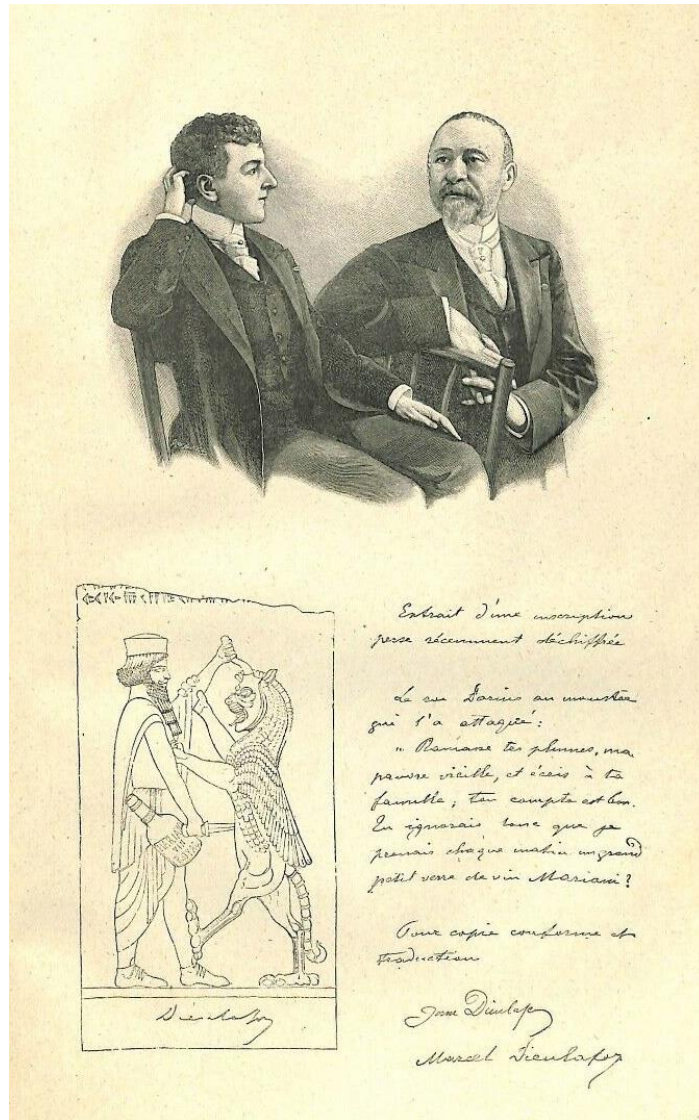 Dieulafoy
Extrait d'une inscription
perse récemment déchiffrée
Le roi Darius au monstre
qui l'a attaqué :
" Ramasse tes plumes, ma
pauvre vieille, et écris à ta
famille ; ton compte est bon.
Tu ignorais donc que je
prenais chaque matin un grand
petit verre de vin Mariani ?
Pour copie conforme et
traduction
Jane Dieulafoy
Marcel Dieulafoy